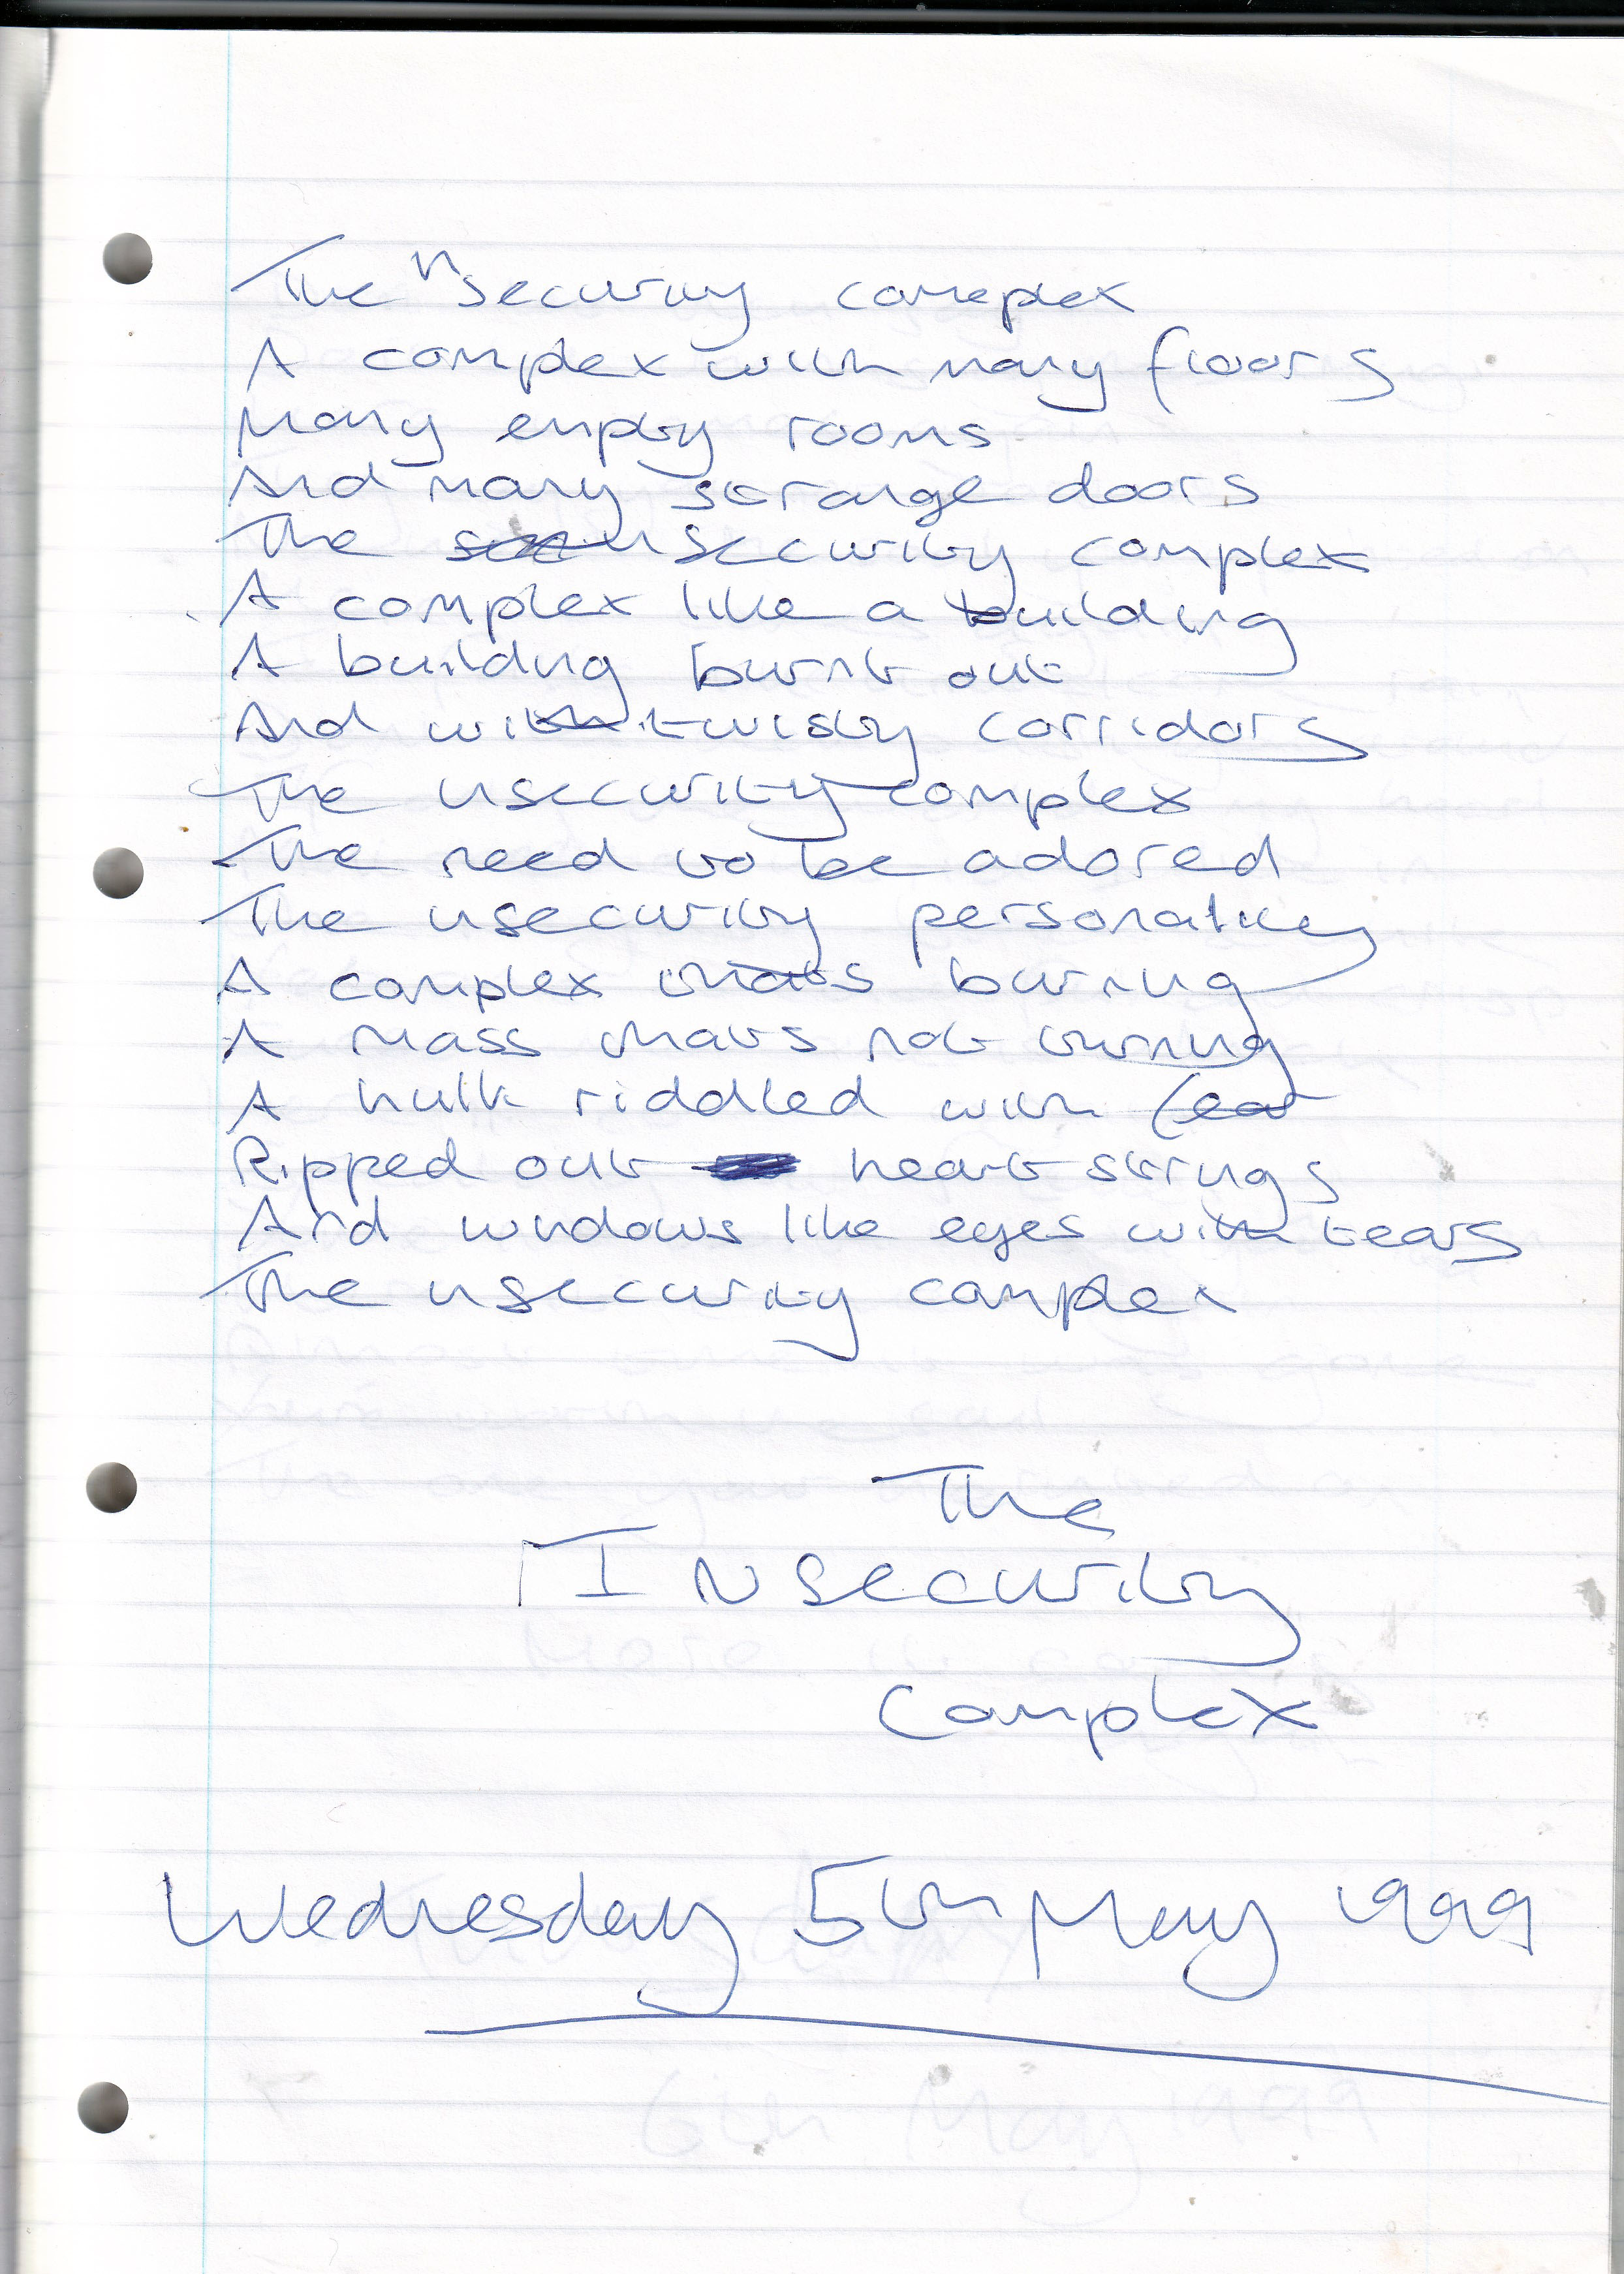 The insecurity complex
A complex with many floors
Many empty rooms
And many strange doors
The insecurity complex
A complex like a building
A building burnt out
And with twisty corridors
The insecurity complex
The need to be adored
The insecurity personality
A complex thats burning
A mass thats not turning
A hulk riddled with fear
Ripped out heart strings
And windows like eyes with tears
The insecurity complex
The
INsecurity
complex
Wednesday 5th May 1999
6th May 1999